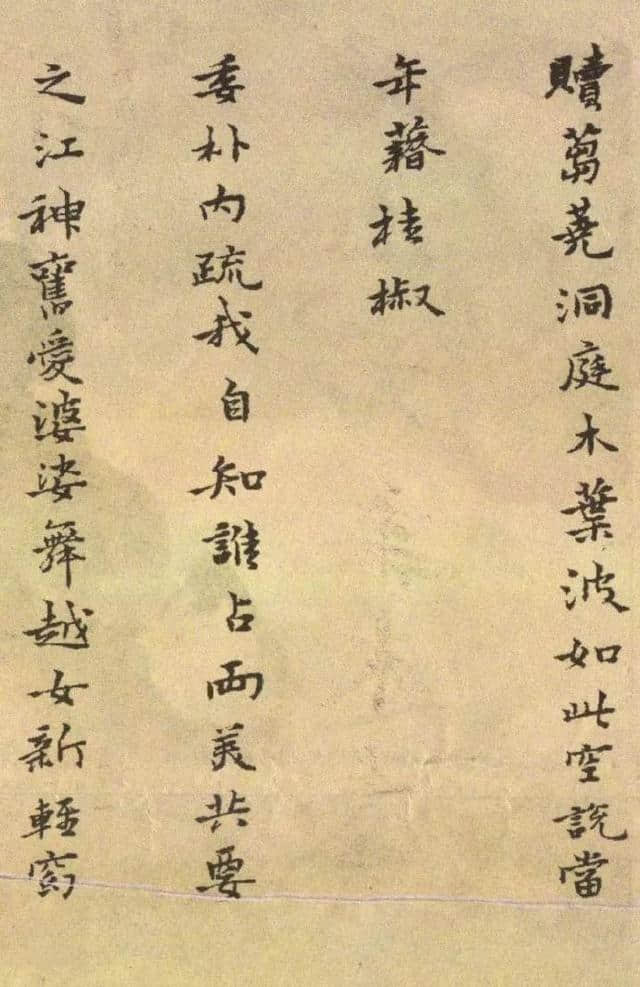 贖蒭蕘洞庭木葉波如此空説當
年藉桂椒
委朴内疏我自知誰占兩美共要
之江神舊愛婆娑舞越女新輕窈